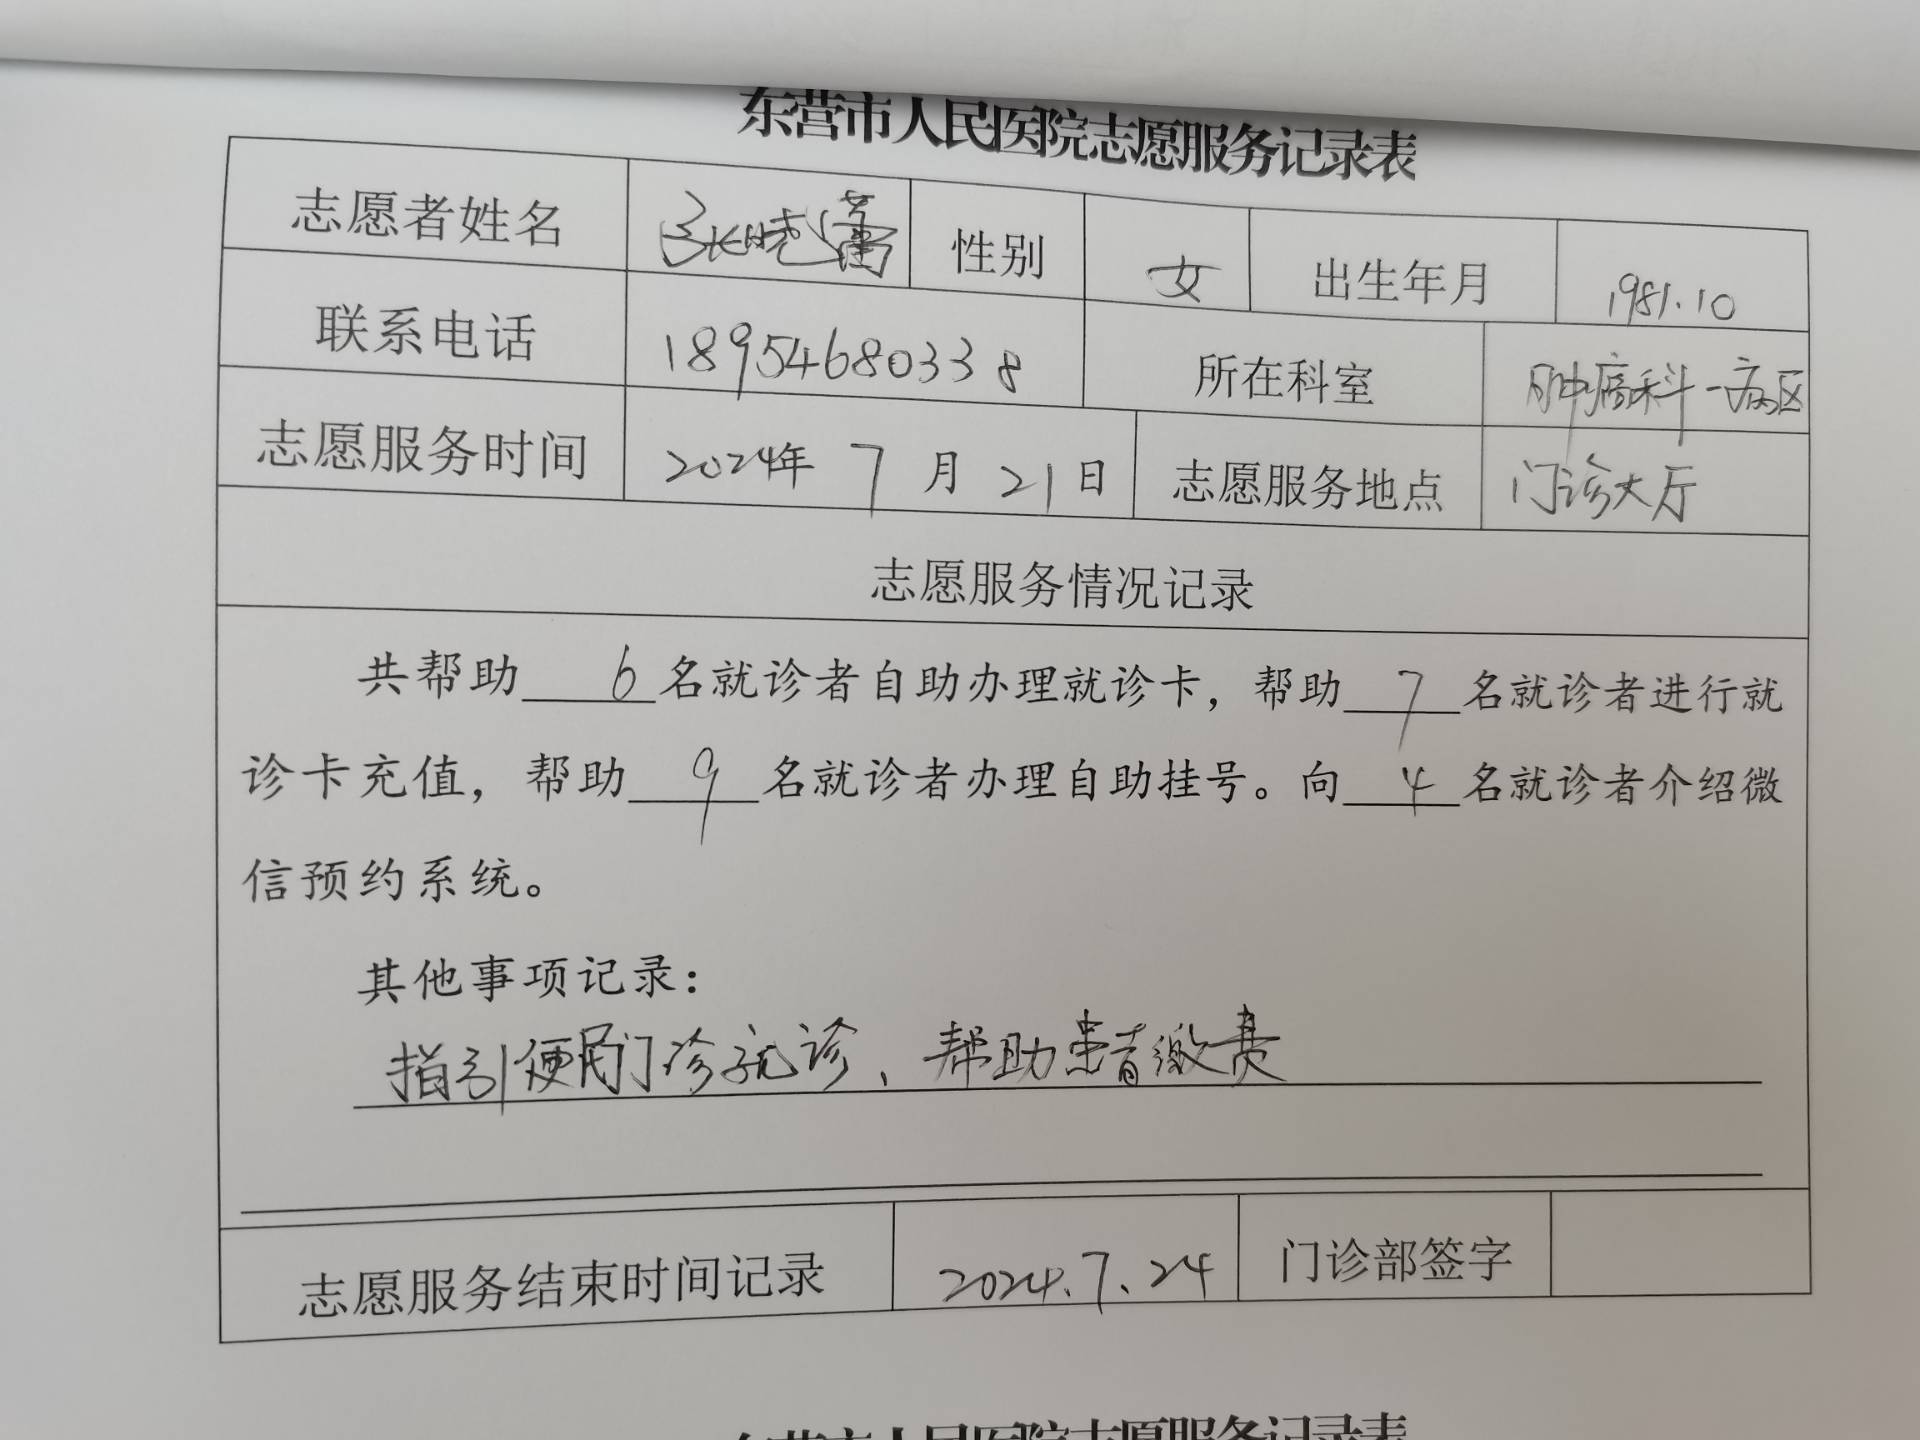 东营市人民医院志愿服务记录表
志愿者姓名 张晓蕾 性别 女 出生年月 1981.10
联系电话 18954680338 所在科室 肿瘤科一病区
志愿服务时间 2024年 7 月 21 日 志愿服务地点 门诊大厅
志愿服务情况记录
共帮助 6 名就诊者自助办理就诊卡，帮助 7 名就诊者进行就
诊卡充值，帮助 9 名就诊者办理自助挂号。向 4 名就诊者介绍微
信预约系统。
其他事项记录：
指引便民门诊就诊、帮助患者缴费
志愿服务结束时间记录 2024.7.24 门诊部签字
东营市人民医院志愿服务记录表